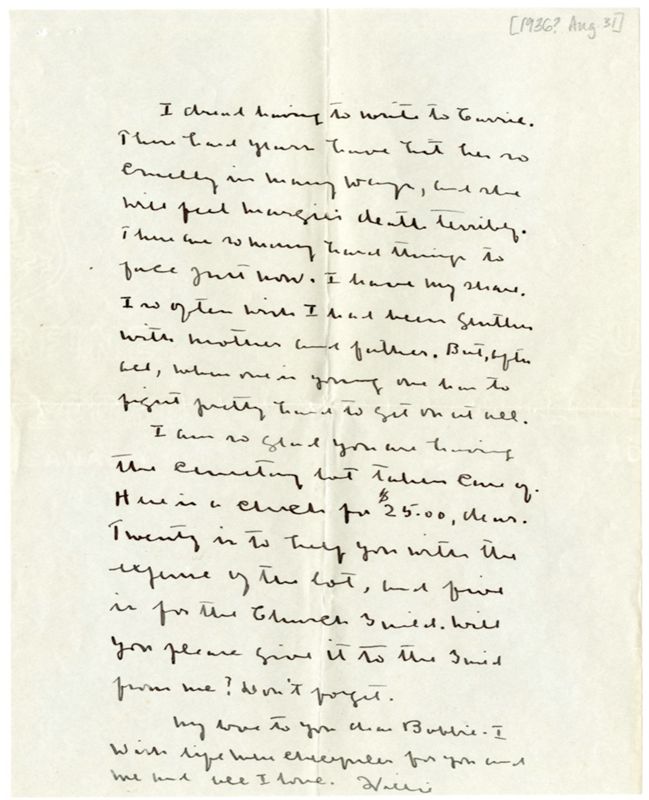 [1936? Aug 31]
I dread having to write to Carrie.
These hard years have hit her so
cruelly in many ways, and she
will feel Margie's death terribly.
There are so many hard things to
face just now. I have my share.
I so often wish I had been gentler
with mother and father. But, after
all, when one is young one has to
fight pretty hard to get on at all.
I am so glad you are having
the cemetary lot taken care of.
Here is a check for $25.00, dear.
Twenty is to help you with the
expense of the lot, and five
is for the Church Guild. Will
you please give it to the Guild
from me? Don't forget.
My love to you dear Bobbie. I
wish life were cheerfuler for you and
me and all I love. Willie